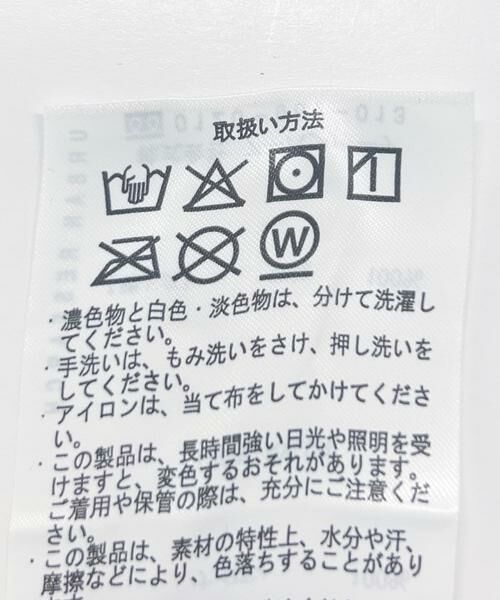 取扱い方法
W
・濃色物と白色・淡色物は、分けて洗濯し
てください。
・手洗いは、もみ洗いをさけ、押し洗いを
してください。
・アイロンは、当て布をしてかけてくださ
い。
・この製品は、長時間強い日光や照明を受
けますと、変色するおそれがあります。
ご着用や保管の際は、充分にご注意くだ
さい。
・この製品は、素材の特性上、水分や汗、
摩擦などにより、色落ちすることがあり